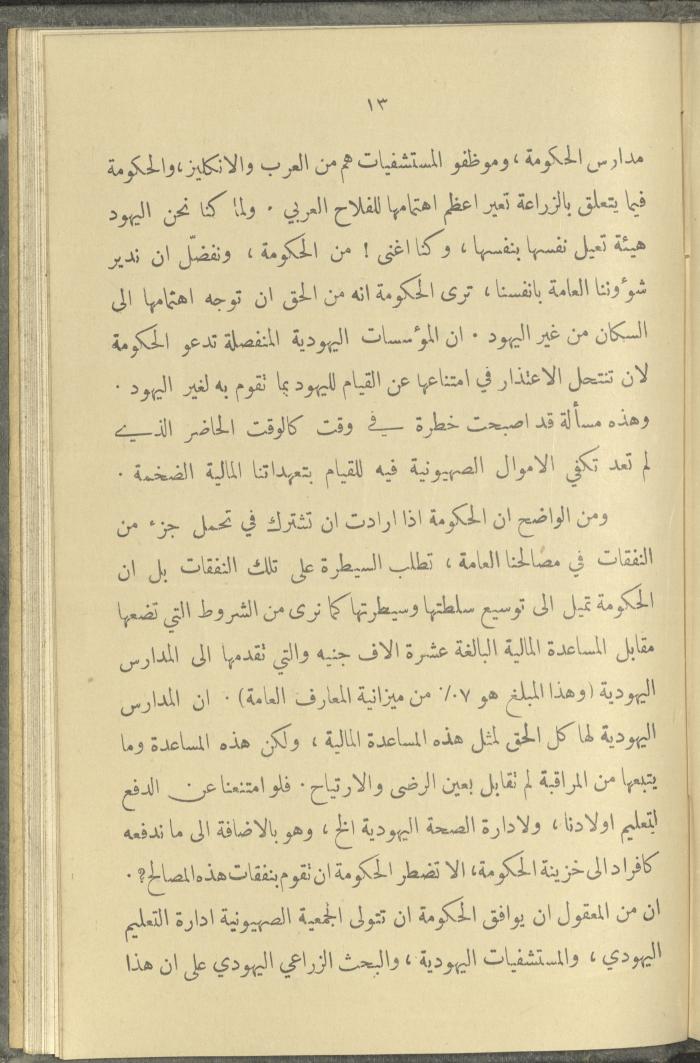 ١٣
مدارس الحكومة ، وموظفو المستشفيات هم من العرب والانكليز ، والحكومة
فيما يتعلق بالزراعة تعير اعظم اهتمامها للفلاح العربي . ولما كنا نحن اليهود
هيئة تعيل نفسها بنفسها ، وكنا اغنى ! من الحكومة ، ونفضّل ان ندير
شوٴوننا العامة بانفسنا ، ترى الحكومة انه من الحق ان توجه اهتمامها الى
السكان من غير اليهود . ان الموٴسسات اليهودية المنفصلة تدعو الحكومة
لان تنتحل الاعتذار في امتناعها عن القيام لليهود بما تقوم به لغير اليهود .
وهذه مسألة قد اصبحت خطرة في وقت كالوقت الحاضر الذي
لم تعد تكفي الاموال الصهيونية فيه للقيام بتعهداتنا المالية الضخمة .
ومن الواضح ان الحكومة اذا ارادت ان تشترك في تحمل جزء من
النفقات في مصالحنا العامة ، تطلب السيطرة على تلك النفقات بل ان
الحكومة تميل الى توسيع سلطتها وسيطرتها كما نرى من الشروط التي تضعها
مقابل المساعدة المالية البالغة عشرة الاف جنيه والتي تقدمها الى المدارس
اليهودية (وهذا المبلغ هو ٠٧٪ من ميزانية المعارف العامة) . ان المدارس
اليهودية لها كل الحق لمثل هذه المساعدة المالية ، ولكن هذه المساعدة وما
يتبعها من المراقبة لم تقابل بعين الرضى والارتياح . فلو امتنعنا عن الدفع
لتعليم اولادنا ، ولادارة الصحة اليهودية الخ ، وهو بالاضافة الى ما ندفعه
كافراد الى خزينة الحكومة ، الا تضطر الحكومة ان تقوم بنفقات هذه المصالح ? .
ان من المعقول ان يوافق الحكومة ان تتولى الجمعية الصهيونية ادارة التعليم
اليهودي ، والمستشفيات اليهودية ، والبحث الزراعي اليهودي على ان هذا